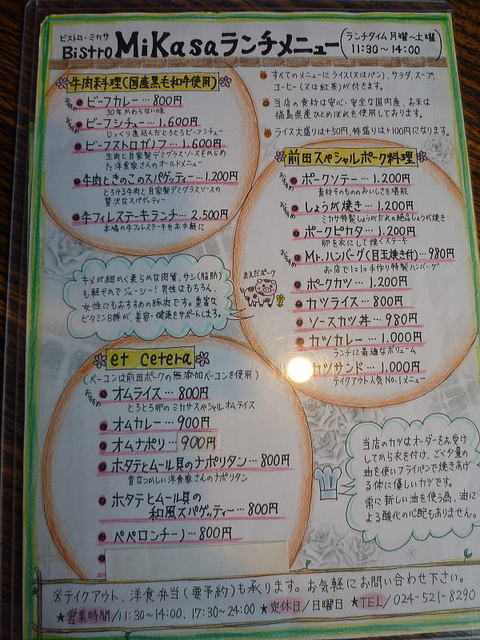 ビストロ・ミカサ
BISTRO MiKasaランチメニュー
ランチタイム 月曜〜土曜
11:30〜14:00
牛肉料理(国産黒毛和牛使用)
ビーフカレー…800円
30年かわらない味
ビーフシチュー…1.600円
じっくり煮込んだとろとろビーフシチュー
ビーフストロガノフ…1.600円
生肉と自家製デミグラスソースをからめ
た洋食家さんのオールドメニュー
牛肉ときのこのスパゲッティー…1.200円
とろける牛肉と自家製デミグラスソースの
贅沢なスパゲッティー
牛フィレステーキランチ…2.500円
本場の牛フィレステーキをお手軽に
すべてのメニューにライス(又はパン)、サラダ、スープ、
コーヒー(又は紅茶)が付きます。
当店の食材は安心・安全な国内産、お米は
福島県産ひとめぼれを使用しております。
ライス大盛りは+50円、特盛りは+100円になります。
前田スペシャルポーク料理
ポークソテー…1.200円
素材そのもののおいしさを堪能
しょうが焼き…1.200円
ミカサ特製しょうがだれの絶品しょうが焼き
ポークピカタ…1.200円
卵を衣にして焼くステーキ
Mr.ハンバーグ(目玉焼き付)…980円
お店で1コ1コ手作り特製ハンバーグ
ポークカツ…1.200円
カツライス…800円
ソースカツ丼…980円
カツカレー…1.000円
ランチに最適なボリューム
カツサンド…1.000円
テイクアウト人気No.1メニュー
キメが細かく柔らかな肉質、サシ(脂肪)
も軽やかでジューシー!男性はもちろん、
女性にもおすすめの豚肉です。豊富な
ビタミンB群が、美容・健康をサポートします。
まえだポーク
et cetera
(ベーコンは前田ポークの無添加ベーコンを使用)
オムライス…800円
とろとろ卵のミカサスペシャルオムライス
オムカレー…900円
オムナポリ…900円
ホタテとムール貝のナポリタン…800円
昔なつかしい洋食家さんのナポリタン
ホタテとムール貝の
和風スパゲッティー…800円
ペペロンチーノ…800円
当店のカツはオーダーをお受け
してから衣を付け、ごく少量の
油を使いフライパンで焼きあげ
る体に優しいカツです。
常に新しい油を使う為、油に
よる酸化の心配もありません。
※テイクアウト、洋食弁当(要予約)も承ります。お気軽にお問い合わせ下さい。
★営業時間/11:30〜14:00、17:30〜24:00 ★定休日/日曜日 ★TEL/024-521-8290